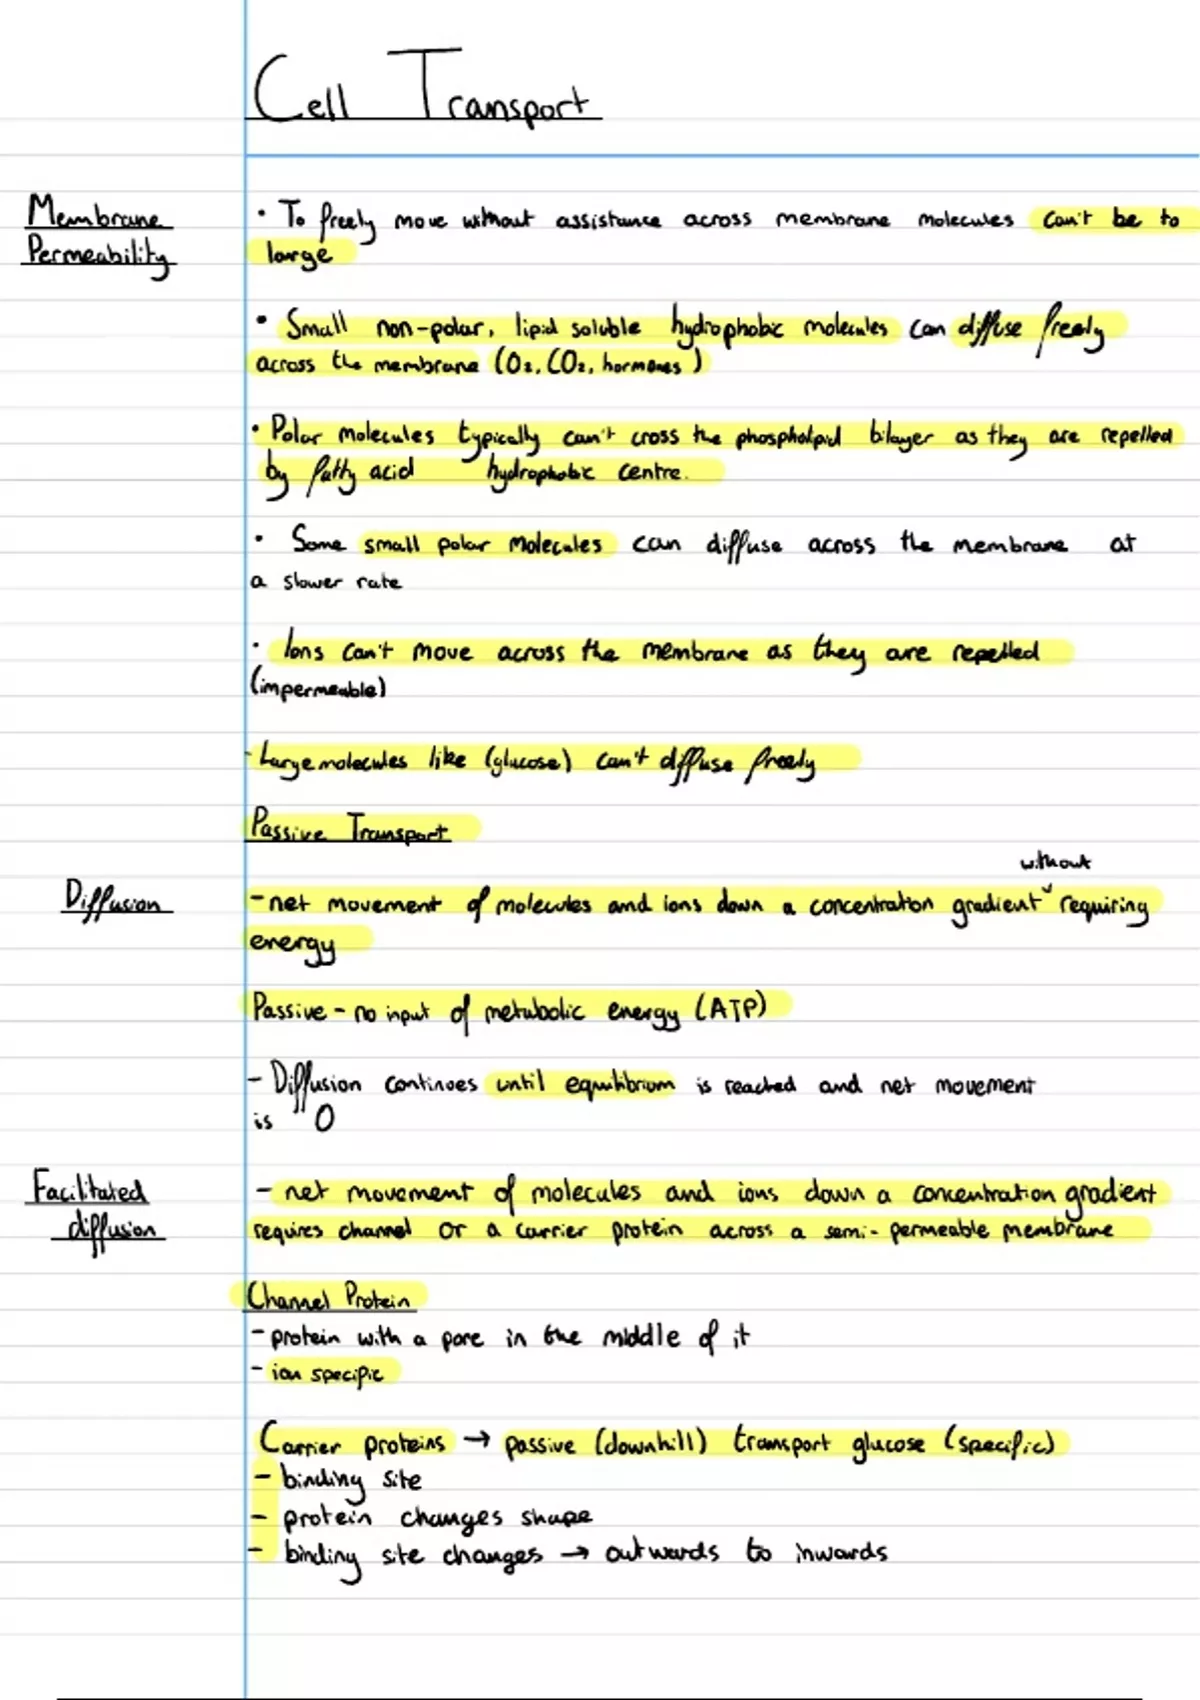 Cell Transport
Membrane
Permeability
• To freely move without assistance across membrane molecules can't be to
large
• Small non-polar, lipid soluble hydrophobic molecules can diffuse freely
across the membrane (O₂, CO₂, hormones)
• Polar molecules typically can't cross the phospholipid bilayer as they are repelled
by fatty acid hydrophobic centre.
• Some small polar molecules can diffuse across the membrane at
a slower rate
• Ions can't move across the membrane as they are repelled
(impermeable)
- Large molecules like (glucose) can't diffuse freely
Passive Transport
without
Diffusion
- net movement of molecules and ions down a concentration gradient ˅ requiring
energy
Passive - no input of metabolic energy (ATP)
- Diffusion continues until equilibrium is reached and net movement
is 0
Facilitated
diffusion
- net movement of molecules and ions down a concentration gradient
requires channel or a carrier protein across a semi-permeable membrane
Channel Protein
- protein with a pore in the middle of it
- ion specific
Carrier proteins → passive (downhill) transport glucose (specific)
- binding site
- protein changes shape
- binding site changes → outwards to inwards